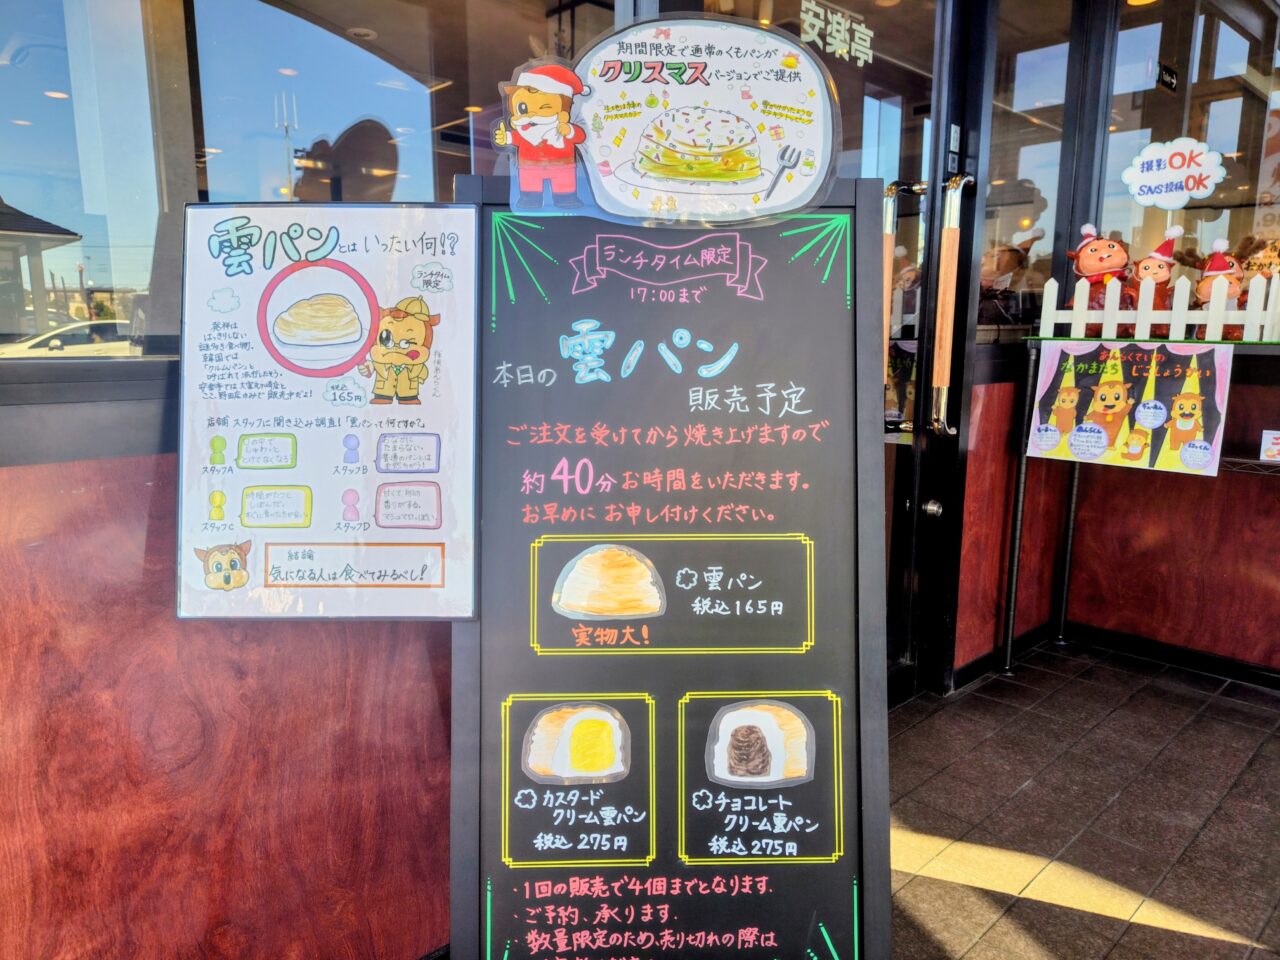 安楽亭
期間限定で通常のくもパンが
クリスマスバージョンでご提供
撮影OK
SNS投稿OK
雲パンとはいったい何!?
ランチタイム
限定
発祥は
はっきりしない
謎多き食べ物。
韓国では
「クルムパン」と
呼ばれて
税込
165円
店舗スタッフに聞き込み調査!「雲パンって何ですか?」
スタッフA
口の中で
しゅわっと
とけてなくなる
スタッフB
スタッフC
スタッフD
結論
気になる人は食べてみるべし!
ランチタイム限定
17:00まで
本日の雲パン
販売予定
ご注文を受けてから焼き上げますので
約40分お時間をいただきます。
お早めにお申し付けください。
雲パン
税込165円
実物大!
カスタード
クリーム雲パン
税込275円
チョコレート
クリーム雲パン
税込275円
・1回の販売で4個までとなります.
・ご予約、承ります.
・数量限定のため、売り切れの際は
あんらくていの
なかまたち じこしょうかい